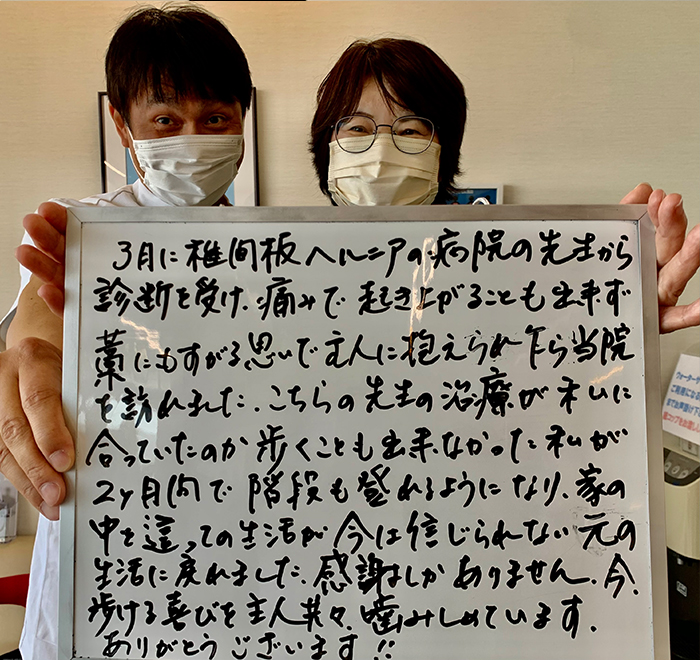 3月に椎間板ヘルニアの病院の先生から
診断を受け、痛みで起き上がることも出来ず
藁にもすがる思いで主人に抱えられ乍ら当院
を訪れました。こちらの先生の治療が私に
合っていたのか歩くことも出来なかった私が
2ヶ月内で階段も登れるようになり、家の
中を這っての生活が今は信じられない元の
生活に戻れました。感謝しかありません。今、
歩ける喜びを主人共々、噛みしめています。
ありがとうございます!!
ウォーターサ
ご利用になる